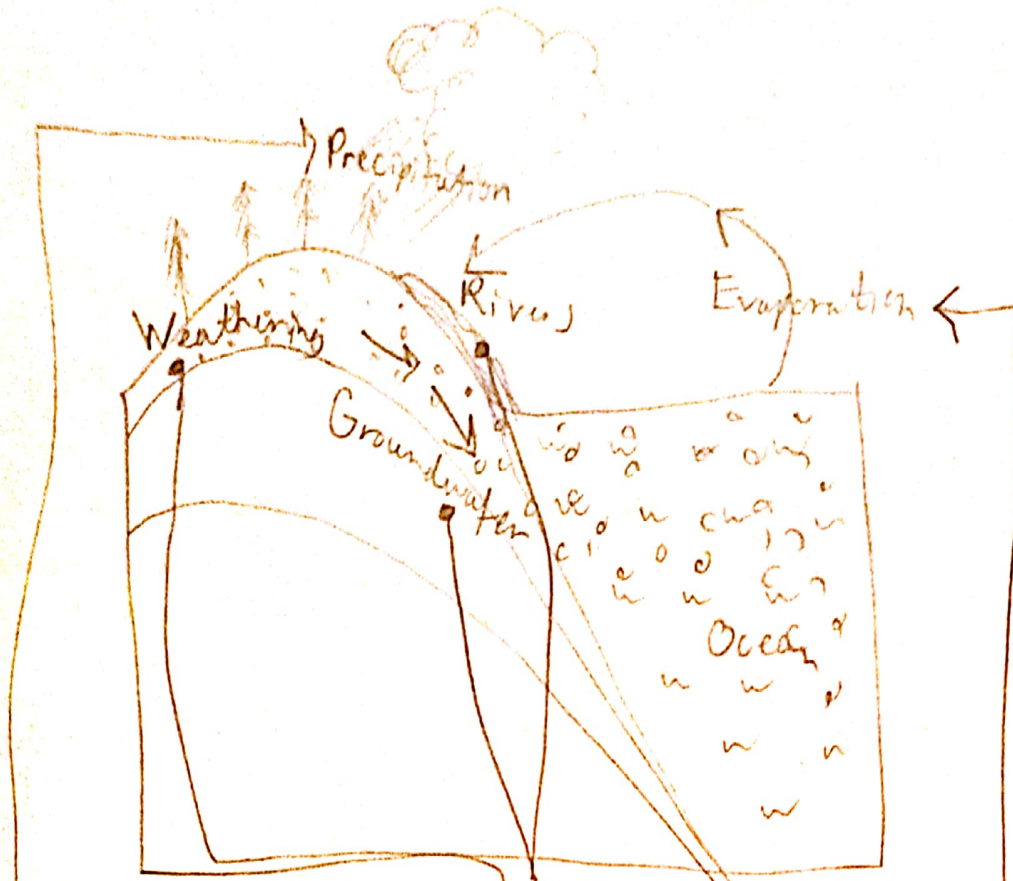 Precipitation
Rivers
Evaporation
Weathering
Groundwater
Ocean